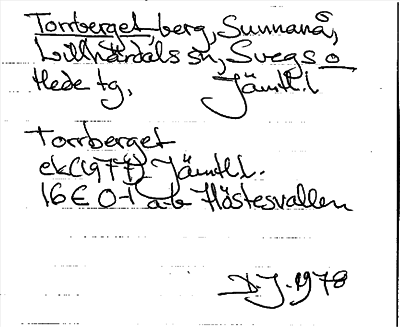 Torrberget berg, Sunnanå,
Lillhärdals sn, Svegs o
Hede tg, Jämtl. l
Torrberget
ek (1977) Jämtl l.
16E 0-1 a-b Höstesvallen
DJ. 1978